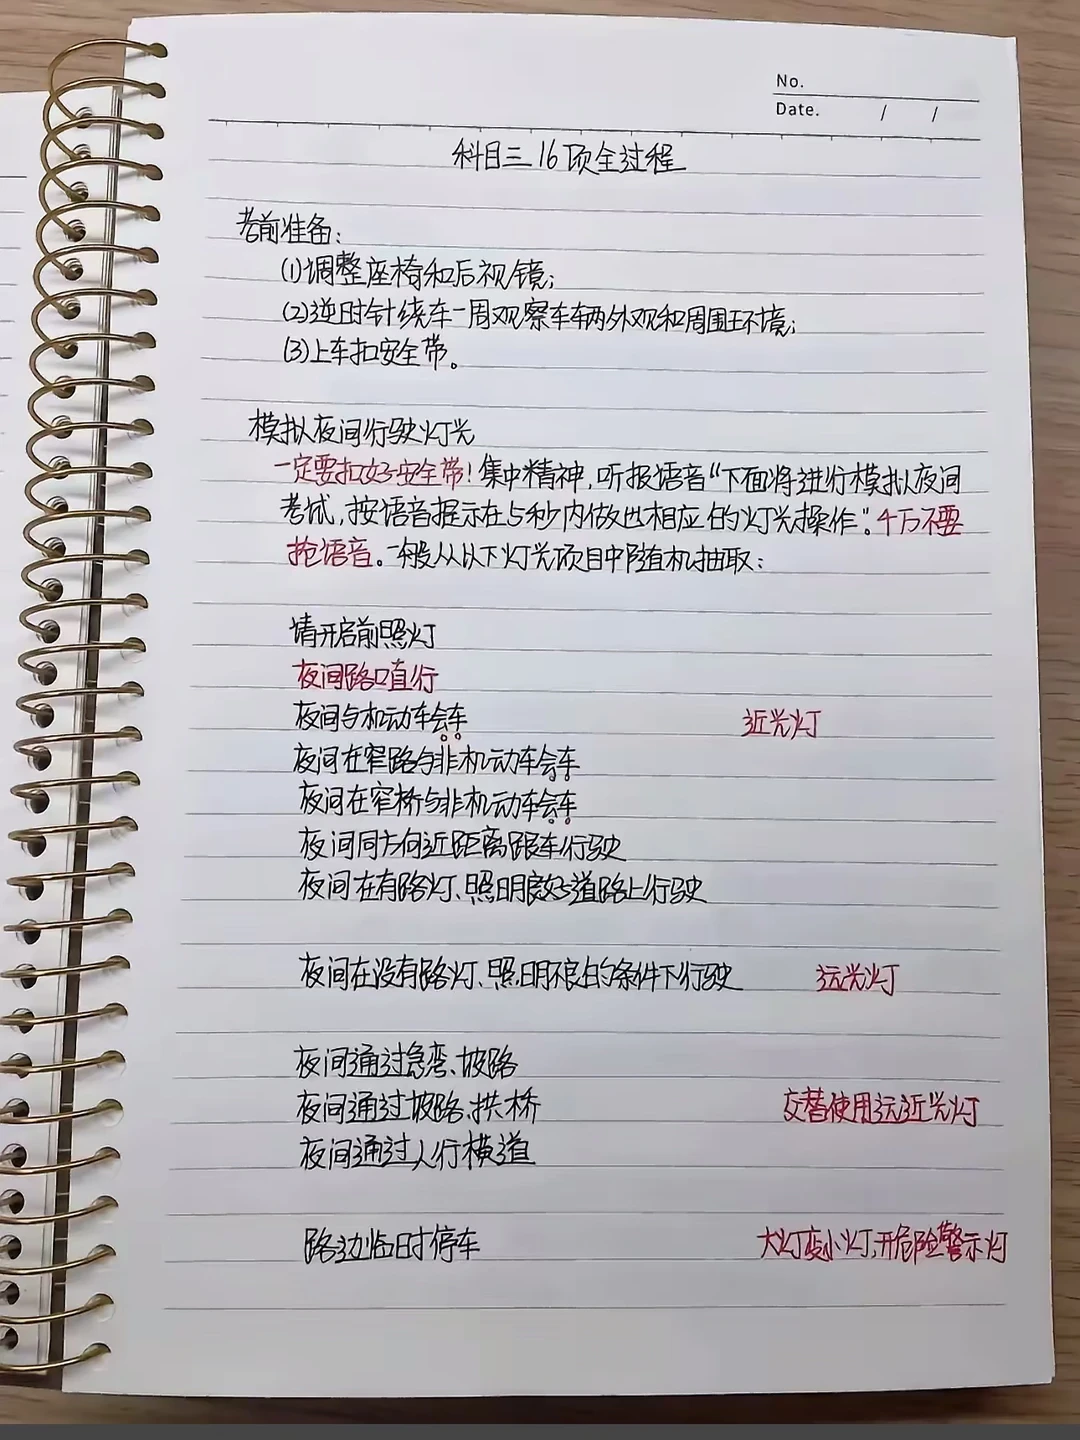 No.
Date. / /
科目三16项全过程
考前准备:
(1)调整座椅和后视镜;
(2)逆时针绕车一周观察车辆外观和周围环境;
(3)上车扣安全带。
模拟夜间行驶灯光
一定要扣好安全带!集中精神,听报语音“下面将进行模拟夜间
考试,按语音提示在5秒内做出相应的灯光操作”。千万不要
抢语音。一般从以下灯光项目中随机抽取:
请开启前照灯
夜间路口直行
夜间与机动车会车 近光灯
夜间在窄路与非机动车会车
夜间在窄桥与非机动车会车
夜间同方向近距离跟车行驶
夜间在有路灯、照明良好道路上行驶
夜间在没有路灯、照明不良的条件下行驶 远光灯
夜间通过急弯、坡路
夜间通过坡路、拱桥 交替使用远近光灯
夜间通过人行横道
路边临时停车 大灯变小灯,开危险警示灯